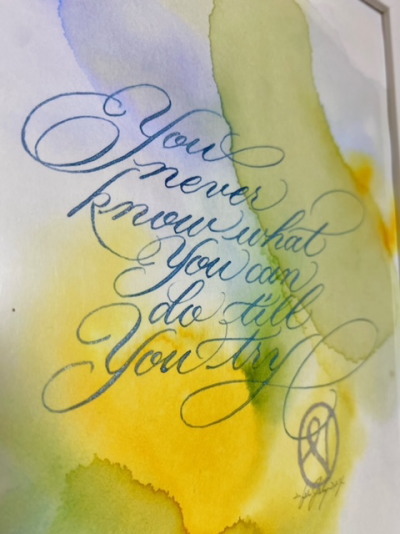 You
never
know what
You can
do till
You try